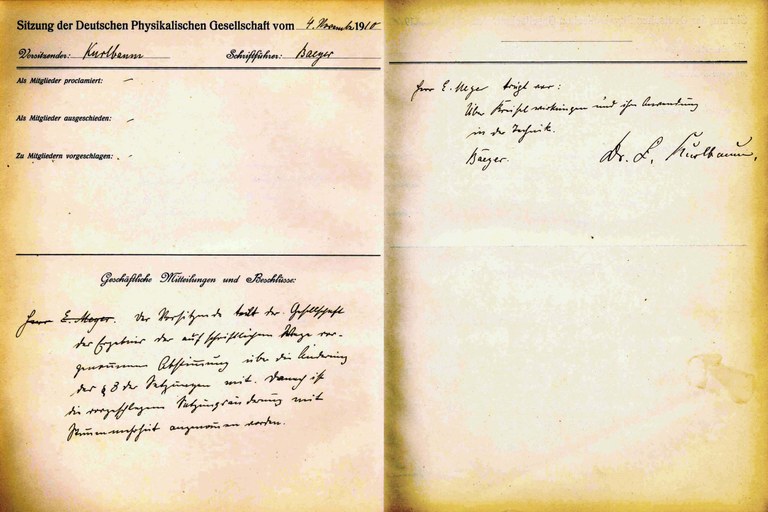 Sitzung der Deutschen Physikalischen Gesellschaft vom 4. November 1910
Vorsitzender: Kurlbaum Schriftführer: Baeyer
Als Mitglieder proclamiert: –
Als Mitglieder ausgeschieden: –
Zu Mitgliedern vorgeschlagen: –
Geschäftliche Mitteilungen und Beschlüsse:
Herr E. Meyer. Der Vorsitzende teilt der Gesellschaft
der Ergebnis der auf schriftlichem Wege vor-
genommenen Abstimmung über die Änderung
des § 8 der Satzungen mit. Danach ist
die vorgeschlagene Satzungsänderung mit
Stimmenmehrheit angenommen worden.
Herr E. Meyer trägt vor:
Über Kreiselwirkungen und ihre Anwendung
in der Technik.
Baeyer. Dr. F. Kurlbaum.